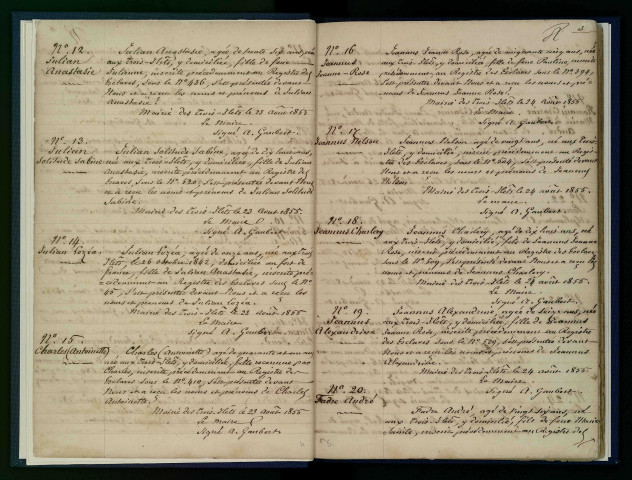 Nº 12.
Julian
Anastasie
Julian Anastasie, agée de trente sept ans, née
aux Trois-Ilets, y domiciliée, fille de feue
Julienne, inscrite précédemment au Registre des
Esclaves sous le Nº 436, s'est présentée devant
Nous et a reçu les noms et prénoms de Julian
Anastasie.
Mairie des Trois-Ilets le 23 août 1855
Le Maire
Signé A. Gaubert.
Nº 13.
Julian
Solitude Sabine
Julian Solitude Sabine, agée de dix huit ans,
née aux Trois-Ilets, y domiciliée, fille de Julian
Anastasie, inscrite précédemment au Registre des
Esclaves sous le Nº 520, s'est présentée devant Nous
et a reçu les noms et prénoms de Julian Solitude
Sabine.
Mairie des Trois-Ilets le 23 août 1855.
Le Maire
Signé A. Gaubert.
Nº 14.
Julian Zozéa
Julian Zozéa, agé de onze ans, né aux Trois
Ilets, le 26 octobre 1842, domicilié au fort de
france, fils de Julian Anastasie, inscrit précédemment
au Registre des Esclaves sous le Nº
45, s'est présenté devant Nous et a reçu les
noms et prénoms de Julian Zozéa.
Mairie des Trois-Ilets le 23 août 1855
Le Maire
Signé A. Gaubert.
Nº 15
Charles (Antoinette)
Charles (Antoinette) agée de quarante et un ans,
née aux Trois-Ilets, y domiciliée, fille reconnue par
Charles, inscrite précédemment au Registre des
Esclaves sous le Nº 410, s'est présentée devant
Nous et a reçu les noms et prénoms de Charles
Antoinette.
Mairie des Trois-Ilets le 23 août 1855
Le Maire
Signé A. Gaubert
3.
Nº 16
Jeannus
Jeanne-Rose
Jeannus Jeanne Rose, agée de cinquante cinq ans, née
aux Trois-Ilets, y domiciliée, fille de feue Pauline, inscrite
précédemment au Registre des Esclaves sous le Nº 398,
s'est présentée devant Nous et a reçu les noms et prénoms
de Jeannus Jeanne Rose.
Mairie des Trois-Ilets le 24 août 1855
Le Maire
Signé A. Gaubert
Nº 17.
Jeannus Nelson
Jeannus Nelson, agé de vingt ans, né aux Trois-
Ilets, y domicilié, inscrit précédemment au Registre
des Esclaves sous le Nº 504, s'est présenté devant
Nous et a reçu les noms et prénoms de Jeannus
Nelson.
Mairie des Trois-Ilets le 24 août 1855.
Le maire
Signé A. Gaubert.
Nº 18.
Jeannus Charlery
Jeannus Charlery, agé de dix huit ans, né
aux Trois-Ilets, y domicilié, fils de Jeannus Jeanne
Rose, inscrit précédemment au Registre des Esclaves
sous le Nº 509, s'est présenté devant Nous et a reçu les
noms et prénoms de Jeannus Charlery.
Mairie des Trois-Ilets le 24 août 1855
Le Maire
Signé A. Gaubert.
Nº 19.
Jeannus
Alexandrine
Jeannus Alexandrine, agée de seize ans, née
aux Trois-Ilets, y domiciliée, fille de Jeannus
Jeanne Rose, inscrite précédemment au Registre
des Esclaves sous le Nº 529, s'est présentée devant
Nous et a reçu les noms et prénoms de Jeannus
Alexandrine.
Mairie des Trois-Ilets le 24 août 1855
Le Maire
Signé A. Gaubert.
Nº 20.
Fadre André
Fadre André, agé de vingt six ans, né
aux Trois-Ilets, y domicilié, fils de feue Marie
Sainte, inscrit précédemment au Registre des